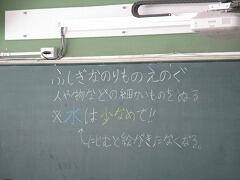 ふしぎなのりものえのぐ
人や物などの細かいものをぬる
※水は少なめで!!
↑にじむと絵がきたなくなる。